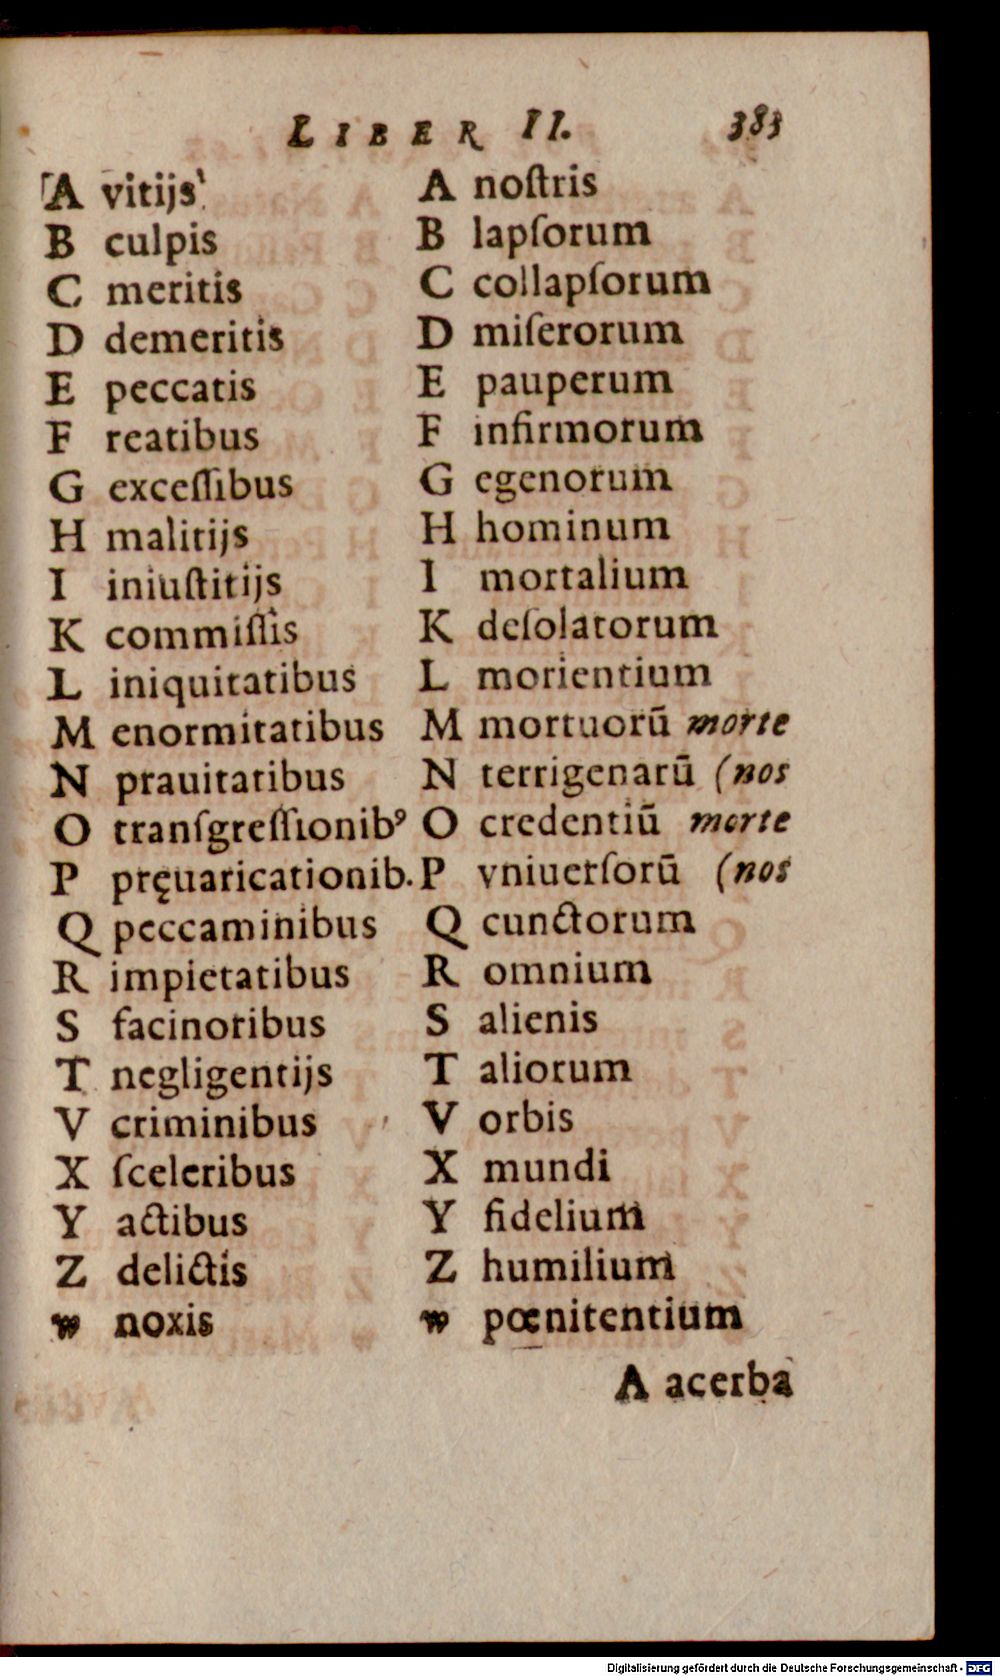 LIBER II. 383
A vitijs
B culpis
C meritis
D demeritis
E peccatis
F reatibus
G exceſſibus
H malitijs
I iniuſtitijs
K commiſſis
L iniquitatibus
M enormitatibus
N prauitatibus
O tranſgreſſionibꝰ
P pręuaricationib.
Q peccaminibus
R impietatibus
S facinoribus
T negligentijs
V criminibus
X ſceleribus
Y actibus
Z delictis
w noxis
A noſtris
B lapſorum
C collapſorum
D miſerorum
E pauperum
F infirmorum
G egenorum
H hominum
I mortalium
K deſolatorum
L morientium
M mortuorū morte
N terrigenarū (nos
O credentiū morte
P vniuerſorū (nos
Q cunctorum
R omnium
S alienis
T aliorum
V orbis
X mundi
Y fidelium
Z humilium
w pœnitentium
A acerba
Digitalisierung gefördert durch die Deutsche Forschungsgemeinschaft - DFG